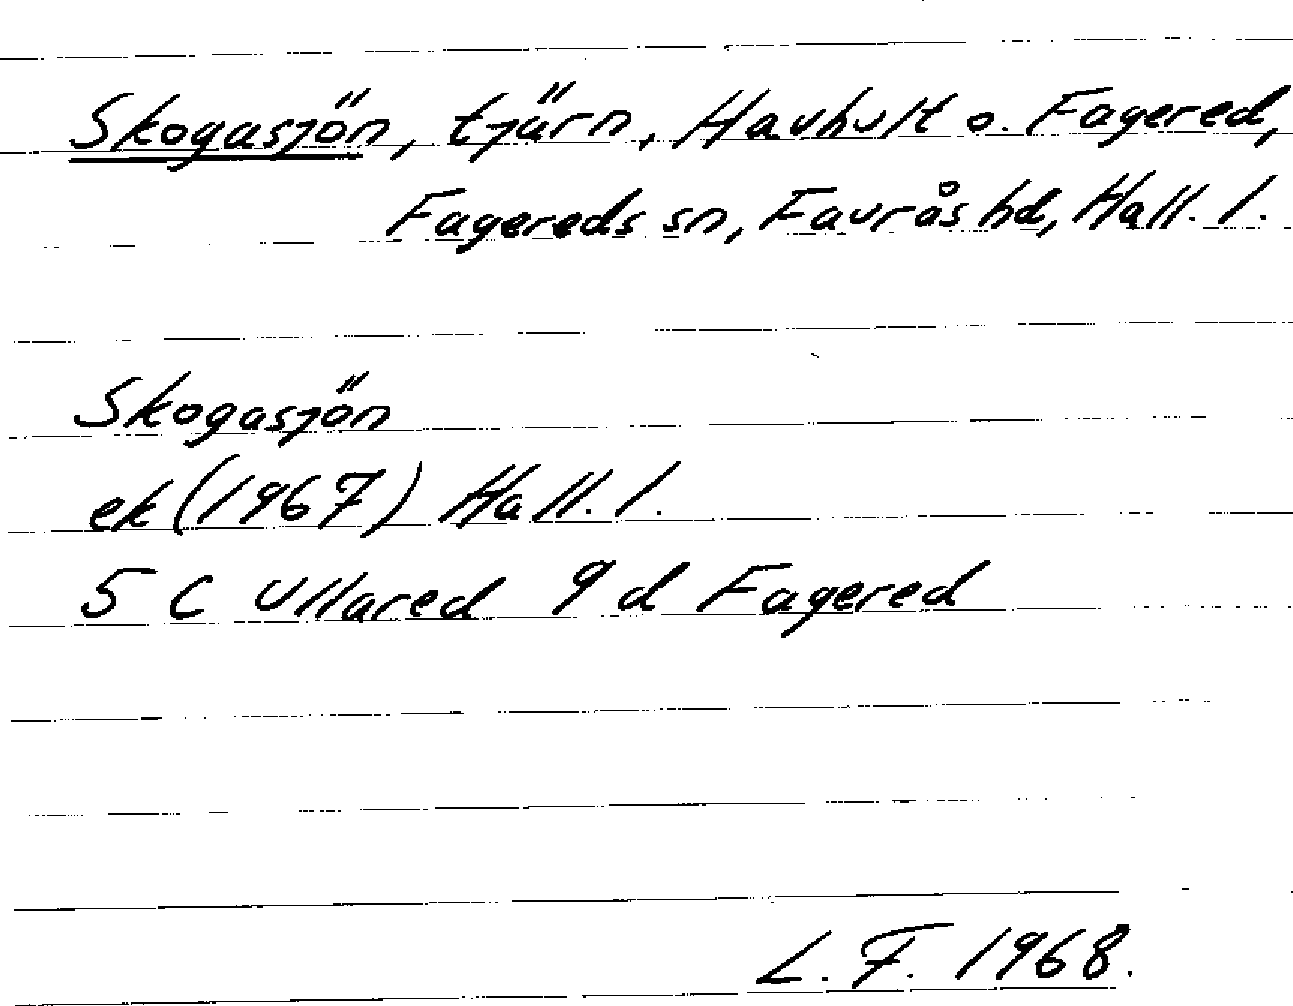 Skogasjön, tjärn, Hauhult o. Fagered,
Fagereds sn, Faurås hd, Hall. l.
Skogasjön
ek (1967) Hall. l.
5 C Ullared 9 d Fagered
L. F. 1968.